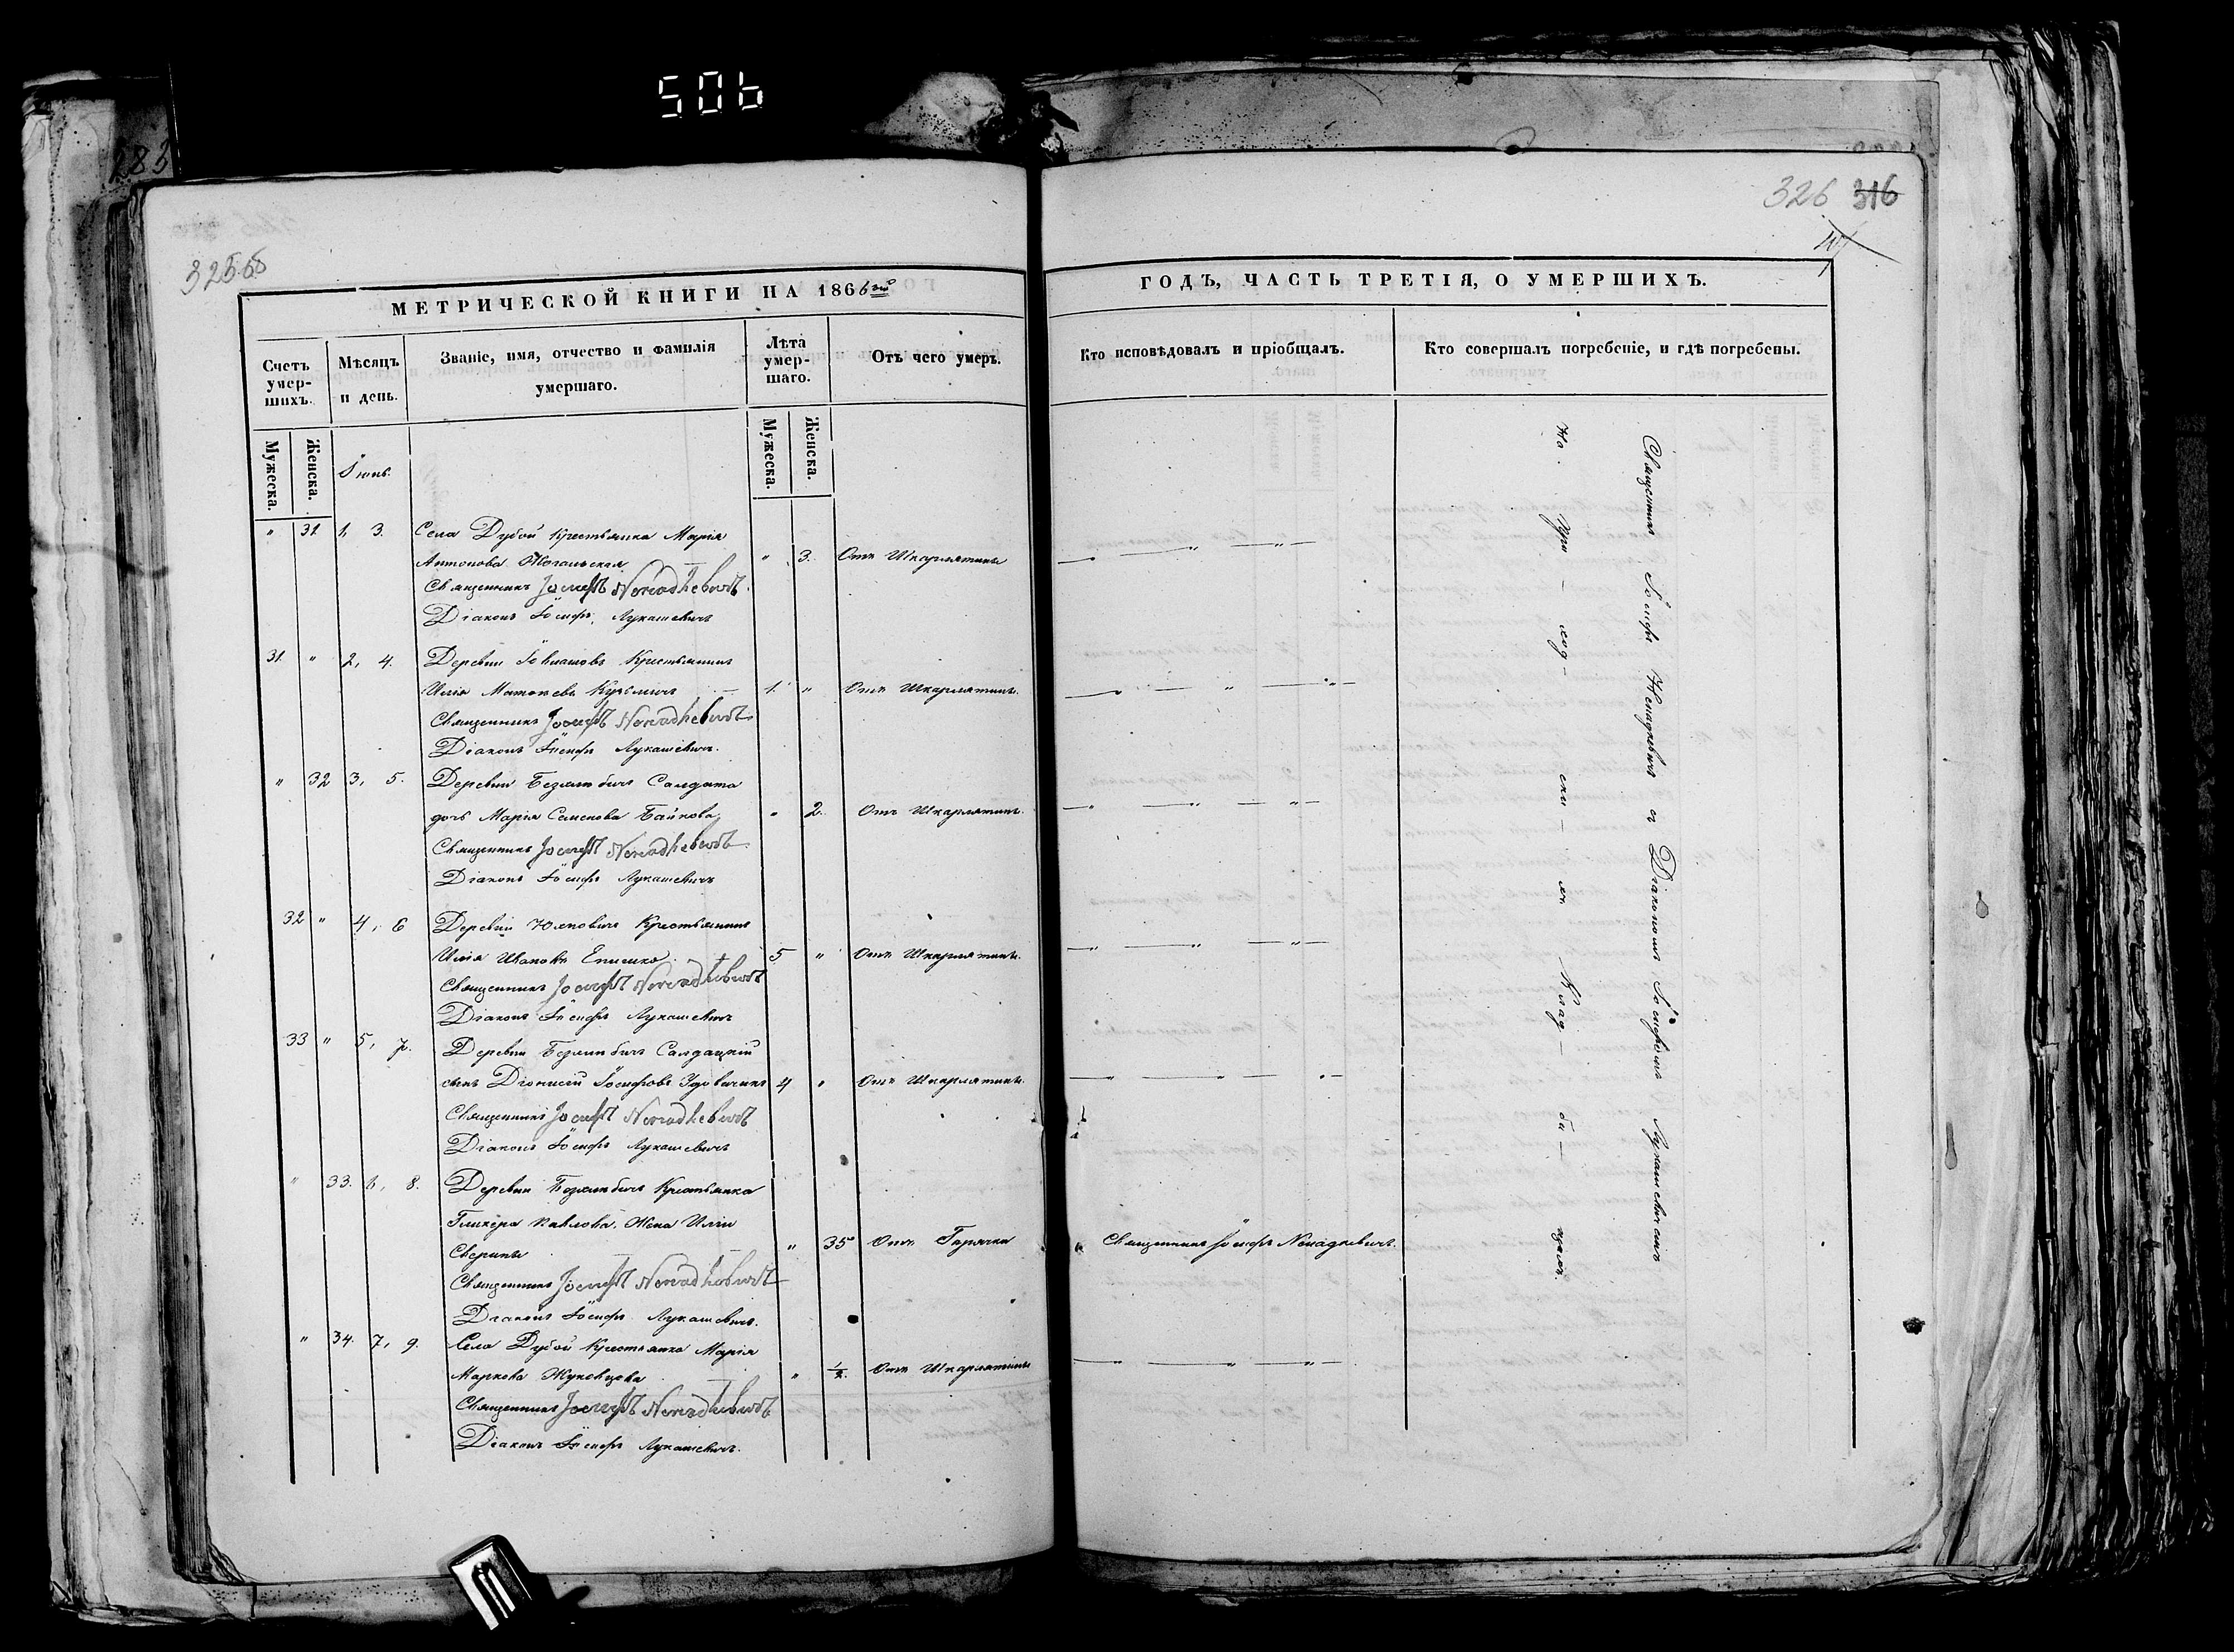 506
283
325об
326 316
МЕТРИЧЕСКОЙ КНИГИ НА 1866й
ГОДЪ, ЧАСТЬ ТРЕТІЯ, О УМЕРШИХЪ.
Счетъ умер-шихъ.
Мѣсяцъ и день.
Званіе, имя, отчество и фамилія умершаго.
Лѣта умер-шаго.
Отъ чего умеръ.
Кто исповѣдовалъ и пріобщалъ.
Кто совершалъ погребеніе, и гдѣ погребены.
Мужеска.
Женска.
Іюнь.
Мужеска.
Женска.
" 31 1, 3. Села Дубой Крестьянка Марія
Антонова " 3. Отъ Шкарлятины — " " —
Священникъ Іосифъ Ненадкевичъ
Діаконъ Іосифъ Лукашевичъ
31. " 2, 4. Деревни Крестьянинъ
Илія Матѳеевъ Кузьмичъ 1. " Отъ Шкарлятины. — " " —
Священникъ Іосифъ Ненадкевичъ
Діаконъ Іосифъ Лукашевичъ.
" 32 3, 5. Деревни Салдата
дочь Марія Семенова Байкова " 2. Отъ Шкарлятины. — " " —
Священникъ Іосифъ Ненадкевичъ
Діаконъ Іосифъ Лукашевичъ
32 " 4, 6 Деревни Крестьянинъ
Илія Ивановъ Епишко 5 " Отъ Шкарлятины. — " " —
Священникъ Іосифъ Ненадкевичъ
Діаконъ Іосифъ Лукашевичъ
33 " 5, 7. Деревни Салдацкій
сынъ Діонисій Іосифовъ 4 " Отъ Шкарлятины. — " " —
Священникъ Іосифъ Ненадкевичъ
Діаконъ Іосифъ Лукашевичъ
" 33. 6, 8. Деревни Крестьянка
Гликера Павлова, Жена Иліи
" 35 Отъ Горячки Священникъ Іосифъ Ненадкевичъ.
Священникъ Іосифъ Ненадкевичъ
Діаконъ Іосифъ Лукашевичъ.
" 34. 7, 9. Села Дубой Крестьянка Марія
Маркова Жуковцова " ½. Отъ Шкарлятины — " " —
Священникъ Іосифъ Ненадкевичъ
Діаконъ Іосифъ Лукашевичъ.
Священникъ Іосифъ Ненадкевичъ съ Діакономъ Іосифомъ Лукашевичемъ
На При — ход — ски — хъ Клад — би — щахъ.